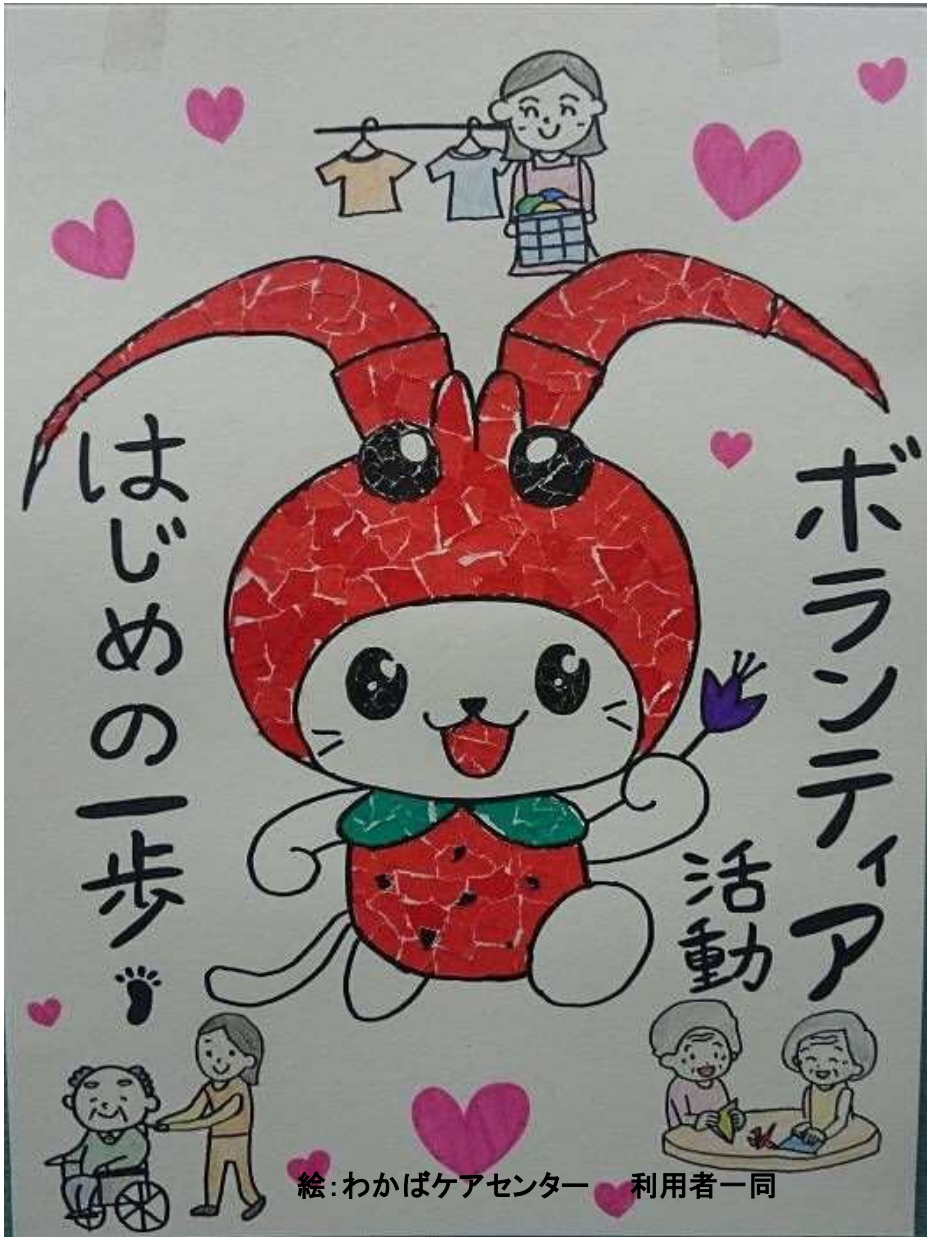 ボランティア
活動
はじめの一歩
絵：わかばケアセンター　利用者一同